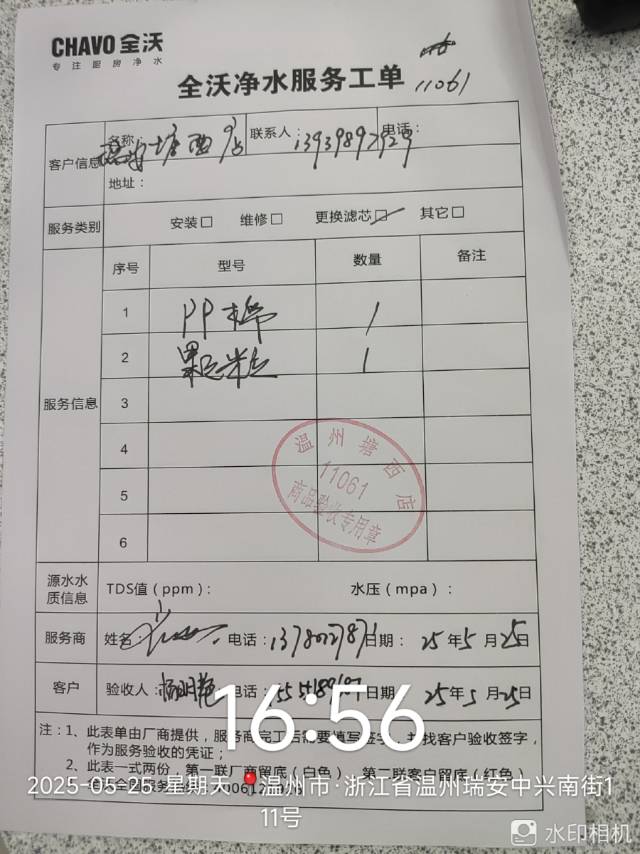 CHAVO 全沃
专注厨房净水
全沃净水服务工单
11061
客户信息 名称: 塘西店 联系人: 电话:
地址:
服务类别 安装□ 维修□ 更换滤芯□ 其它□
服务信息 序号 型号 数量 备注
1 PP棉 1
2 颗粒 1
3
4
5
6
温州塘西店
11061
商品验收专用章
源水水质信息 TDS值(ppm): 水压(mpa):
服务商 姓名: 电话: 日期: 25年5月25日
客户 验收人: 电话: 日期: 25年5月25日
16:56
注:1、此表单由厂商提供,服务商完工后需要填写签字,并找客户验收签字,
作为服务验收的凭证;
2、此表一式两份,第一联厂商留底(白色),第二联客户留底(红色)
2025-05-25 星期天 温州市·浙江省温州瑞安中兴南街1
11号
水印相机